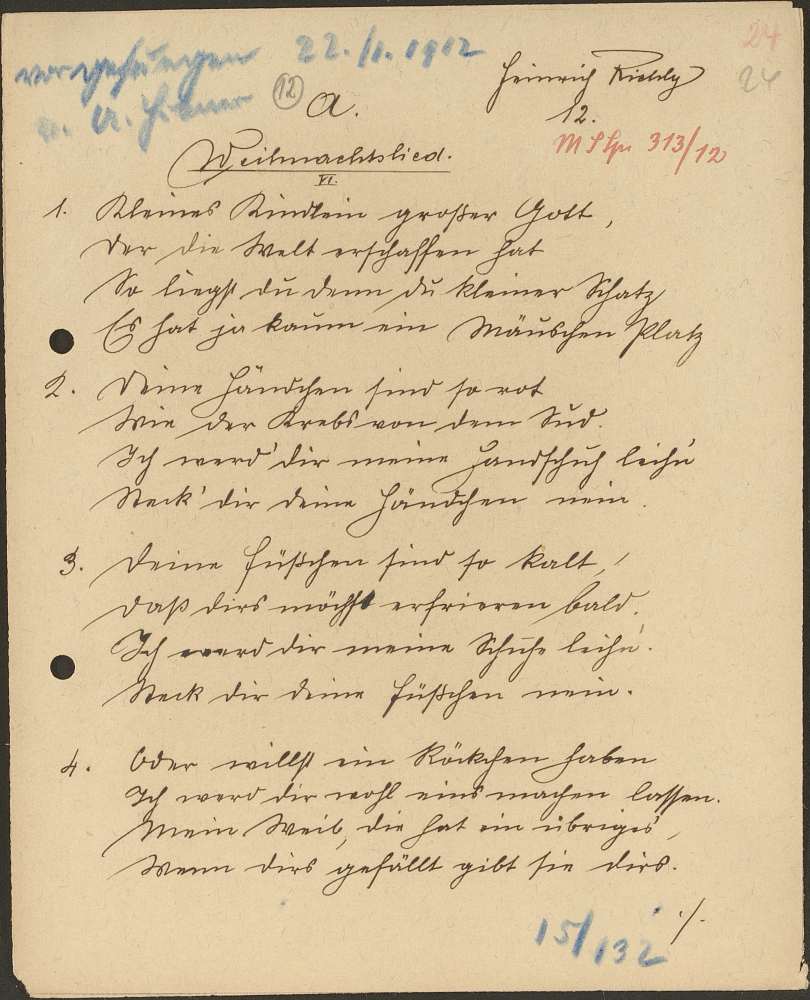 vorgesungen 22./1. 1912
24
24
12
a.
Heinrich Richly
12.
313/12
Weihnachtslied.
VI.
1. Kleines Kindlein großer Gott,
Der die Welt erschaffen hat
So liegst du denn du kleiner Schatz
Es hat ja kaum ein Mäuschen Platz
2. Deine Händchen sind so rot
Wie der Krebs von dem Sud.
Ich werd' dir meine Handschuh leihn
Steck' dir deine Händchen nein.
3. Deine Füßchen sind so kalt,
Daß dirs möchst erfrieren bald.
Ich werd dir meine Schuhe leihn.
Steck dir deine Füßchen nein.
4. Oder willst ein Röckchen haben
Ich werd dir wohl eins machen lassen.
Mein Weib, die hat ein übriges,
Wenn dirs gefällt gibt sie dirs.
./.
15/132